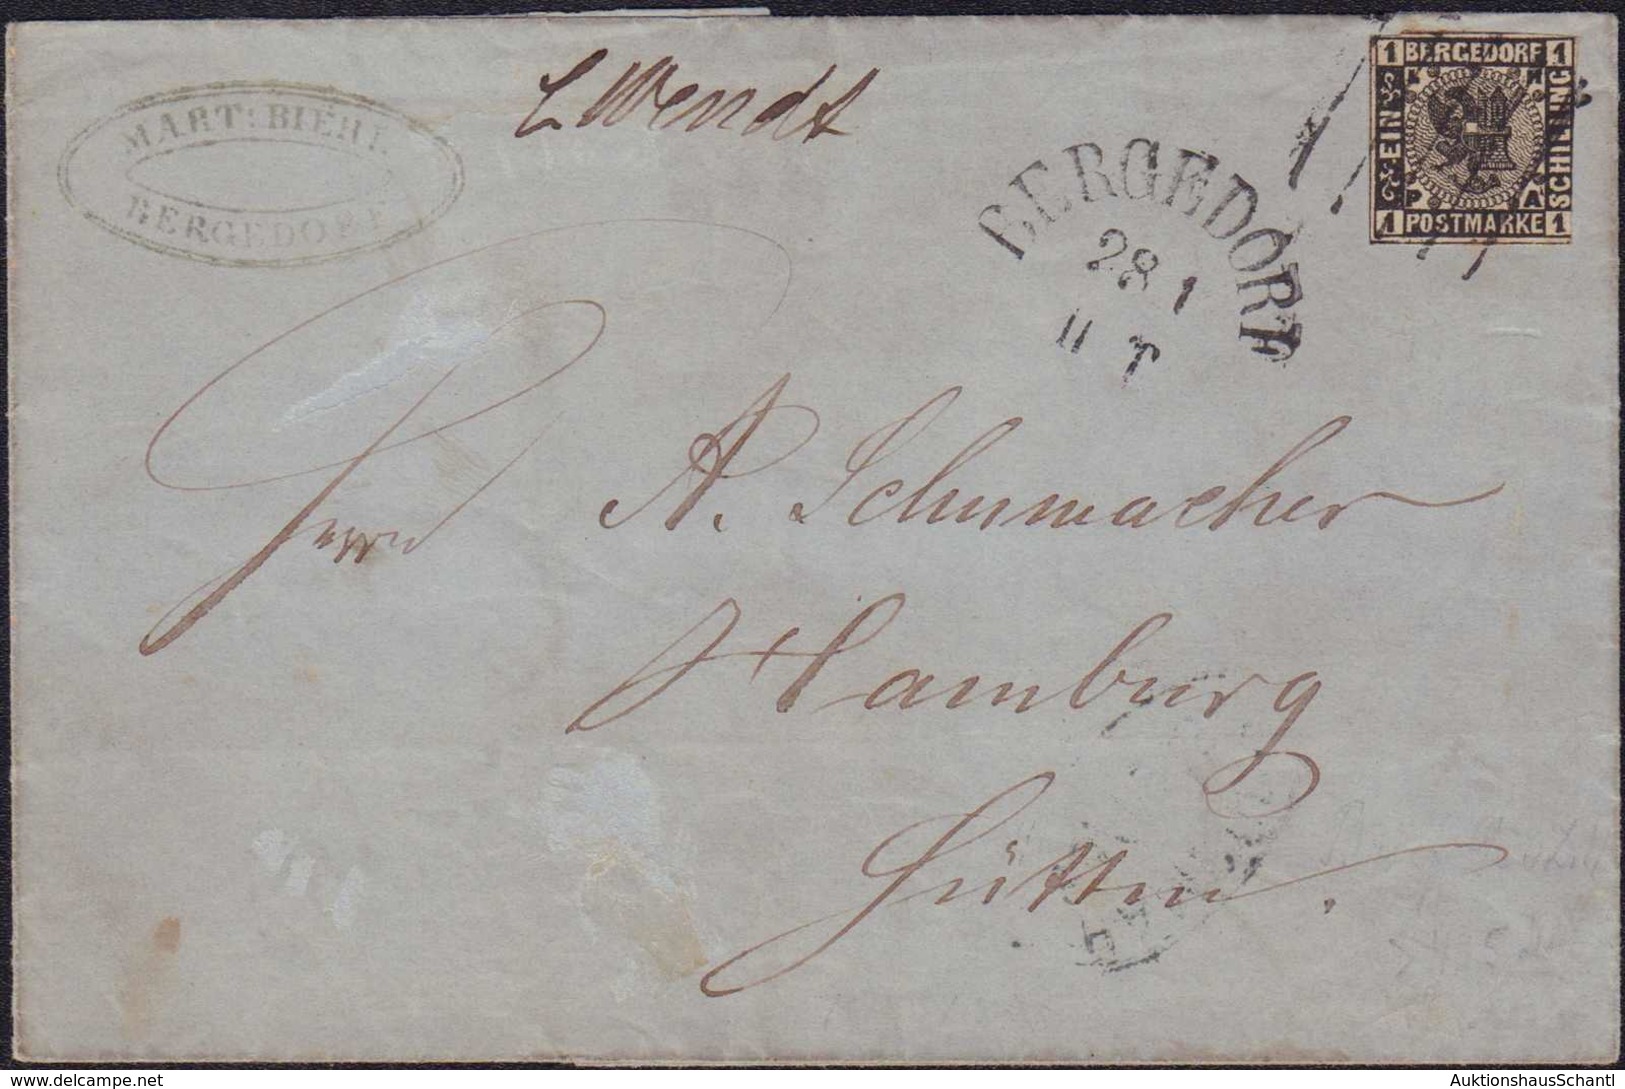 MART: BIEHL
BERGEDORF
E Wendt
BERGEDORF
28 1
II T
1 BERGEDORF 1
EIN
SCHILLING
L H
P A
1 POSTMARKE 1
Herrn A. Schumacher
Hamburg
Hütten.
www.delcampe.net
AuktionshausSchantl